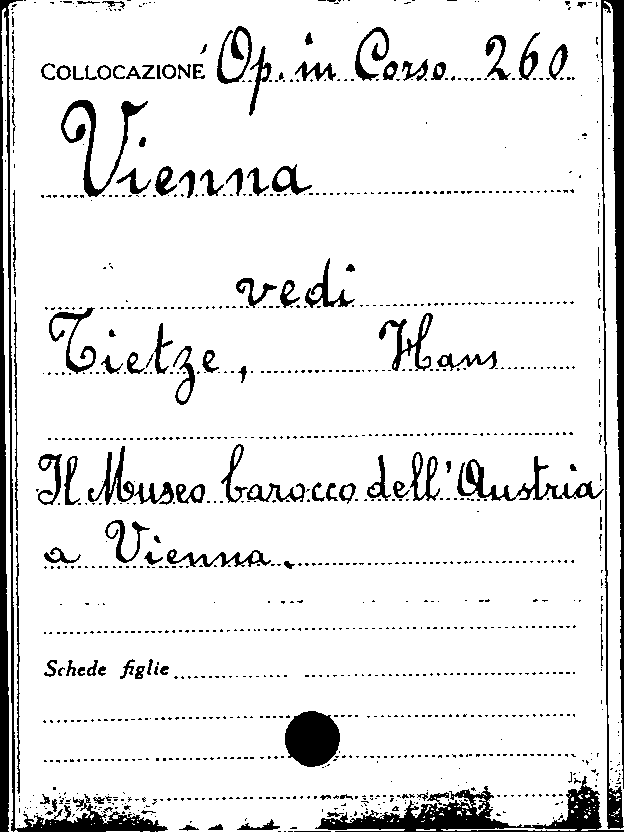 COLLOCAZIONE Op. in Corso 260
Vienna
vedi
Tietze, Hans
Il Museo barocco dell'Austria
a Vienna.
Schede figlie